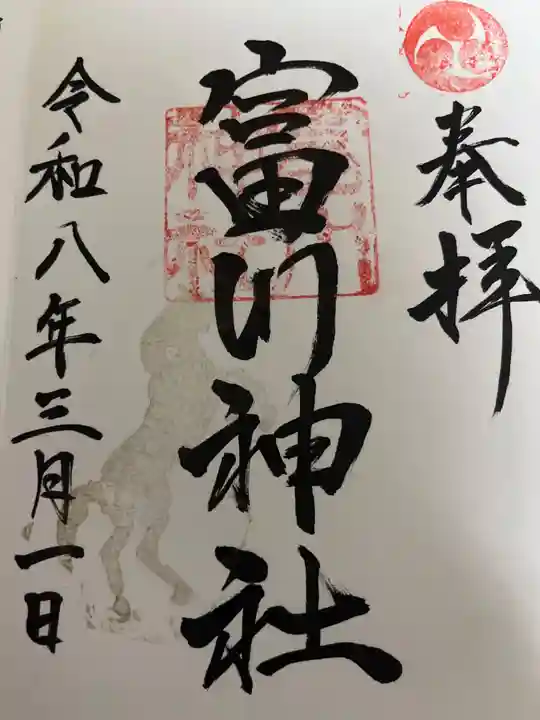 奉拝
富川神社
令和八年三月一日